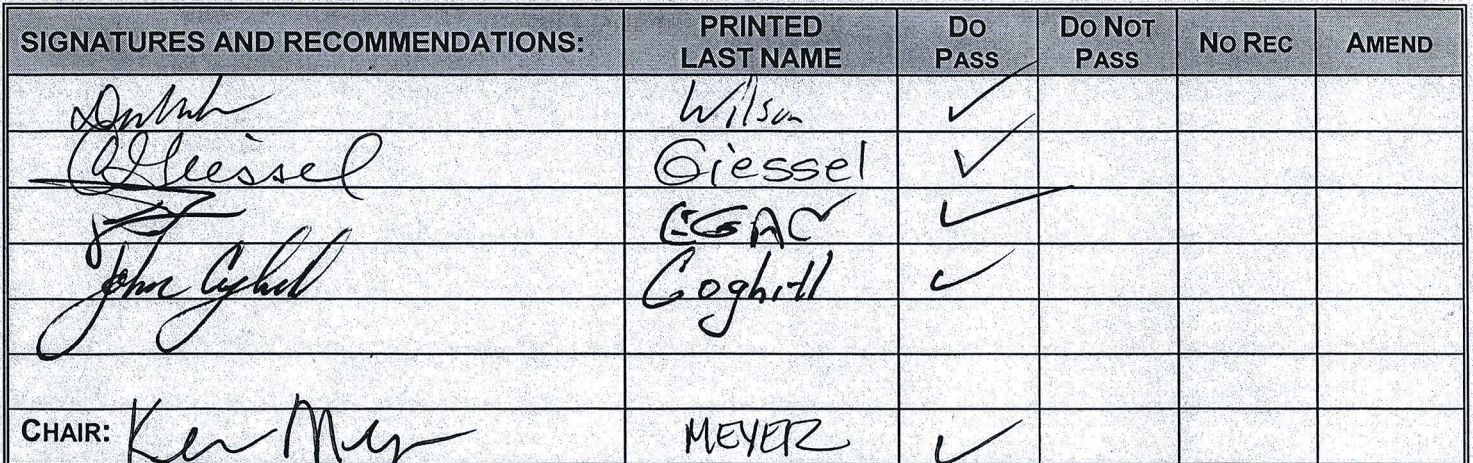 SIGNATURES AND RECOMMENDATIONS: PRINTED LAST NAME DO PASS DO NOT PASS NO REC AMEND
Wilson ✓
Giessel Giessel ✓
EGAN ✓
John Coghill Coghill ✓
CHAIR: Kevin Meyer MEYER ✓